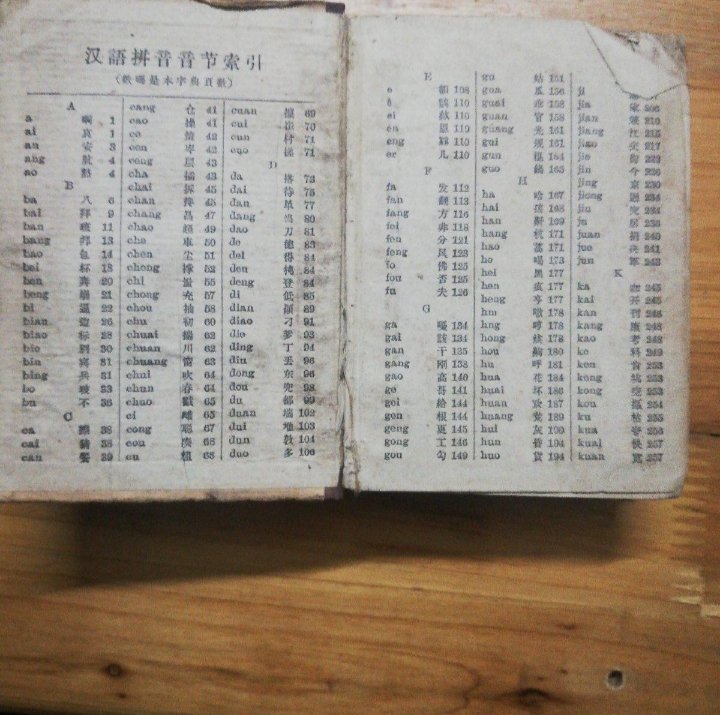 汉語拼音音节索引
(數碼是本字典頁數)
A
a 啊 1
ai 哀 1
an 安 3
ang 骯 4
ao 熬 4
B
ba 八 6
bai 拜 9
ban 班 11
bang 邦 13
bao 包 14
bei 杯 18
ben 奔 20
beng 崩 21
bi 逼 22
bian 边 26
biao 标 28
bie 別 30
bin 賓 31
bing 兵 31
bo 玻 33
bu 不 36
C
ca 擦 38
cai 猜 38
can 餐 39
cang 仓 41
cao 操 41
ce 42
cen 岑 42
ceng 层 43
cha 插 43
chai 拆 45
chan 45
chang 昌 47
chao 超 49
che 車 50
chen 尘 51
cheng 撑 52
chi 55
chong 充 57
chou 抽 58
chu 初 60
chuai 揣 62
chuan 川 62
chuang 窗 63
chui 吹 64
chun 春 64
chuo 戳 65
ci 65
cong 聪 67
cou 凑 68
cu 粗 68
cuan 69
cui 崔 70
cun 村 71
cuo 搓 71
D
da 搭 73
dai 待 75
dan 单 77
dang 当 80
dao 刀 81
de 德 83
dei 得 84
den 84
deng 登 84
di 低 85
dian 顛 89
diao 刁 91
die 爹 93
ding 丁 94
diu 丢 96
dong 东 96
dou 兜 98
du 都 99
duan 端 102
dui 堆 103
dun 敦 104
duo 多 106
E
e 額 108
ê 110
ei 110
en 恩 110
eng 110
er 儿 110
F
fa 发 112
fan 翻 113
fang 方 116
fei 非 118
fen 分 121
feng 风 123
fo 佛 125
fou 否 125
fu 夫 126
G
ga 嘎 134
gai 該 134
gan 干 135
gang 刚 138
gao 高 140
ge 哥 141
gei 給 144
gen 根 144
geng 更 145
gong 工 146
gou 勾 149
gu 姑 151
gua 瓜 156
guai 乖 158
guan 官 158
guang 光 161
gui 规 161
gun 辊 164
guo 鍋 165
H
ha 哈 167
hai 孩 168
han 鼾 169
hang 杭 171
hao 蒿 171
he 喝 173
hei 黑 177
hen 痕 177
heng 亨 178
hm 噷 178
hng 哼 178
hong 烘 178
hou 180
hu 呼 181
hua 花 184
huai 坏 186
huan 欢 187
huang 荒 189
hui 灰 190
hun 昏 194
huo 貨 194
ji
jia 家 206
jian 210
jiang 江 215
jiao 交 217
jie 街 223
jin 今 226
jing 京 230
jiong 234
jiu 究 234
ju 居 236
juan 捐 240
jue 决 241
jun 軍 243
K
ka 咖 245
kai 开 245
kan 刊 246
kang 康 248
kao 考 248
ke 科 249
ken 肯 253
keng 坑 253
kong 空 253
kou 摳 254
ku 枯 255
kua 夸 256
kuai 快 257
kuan 宽 257